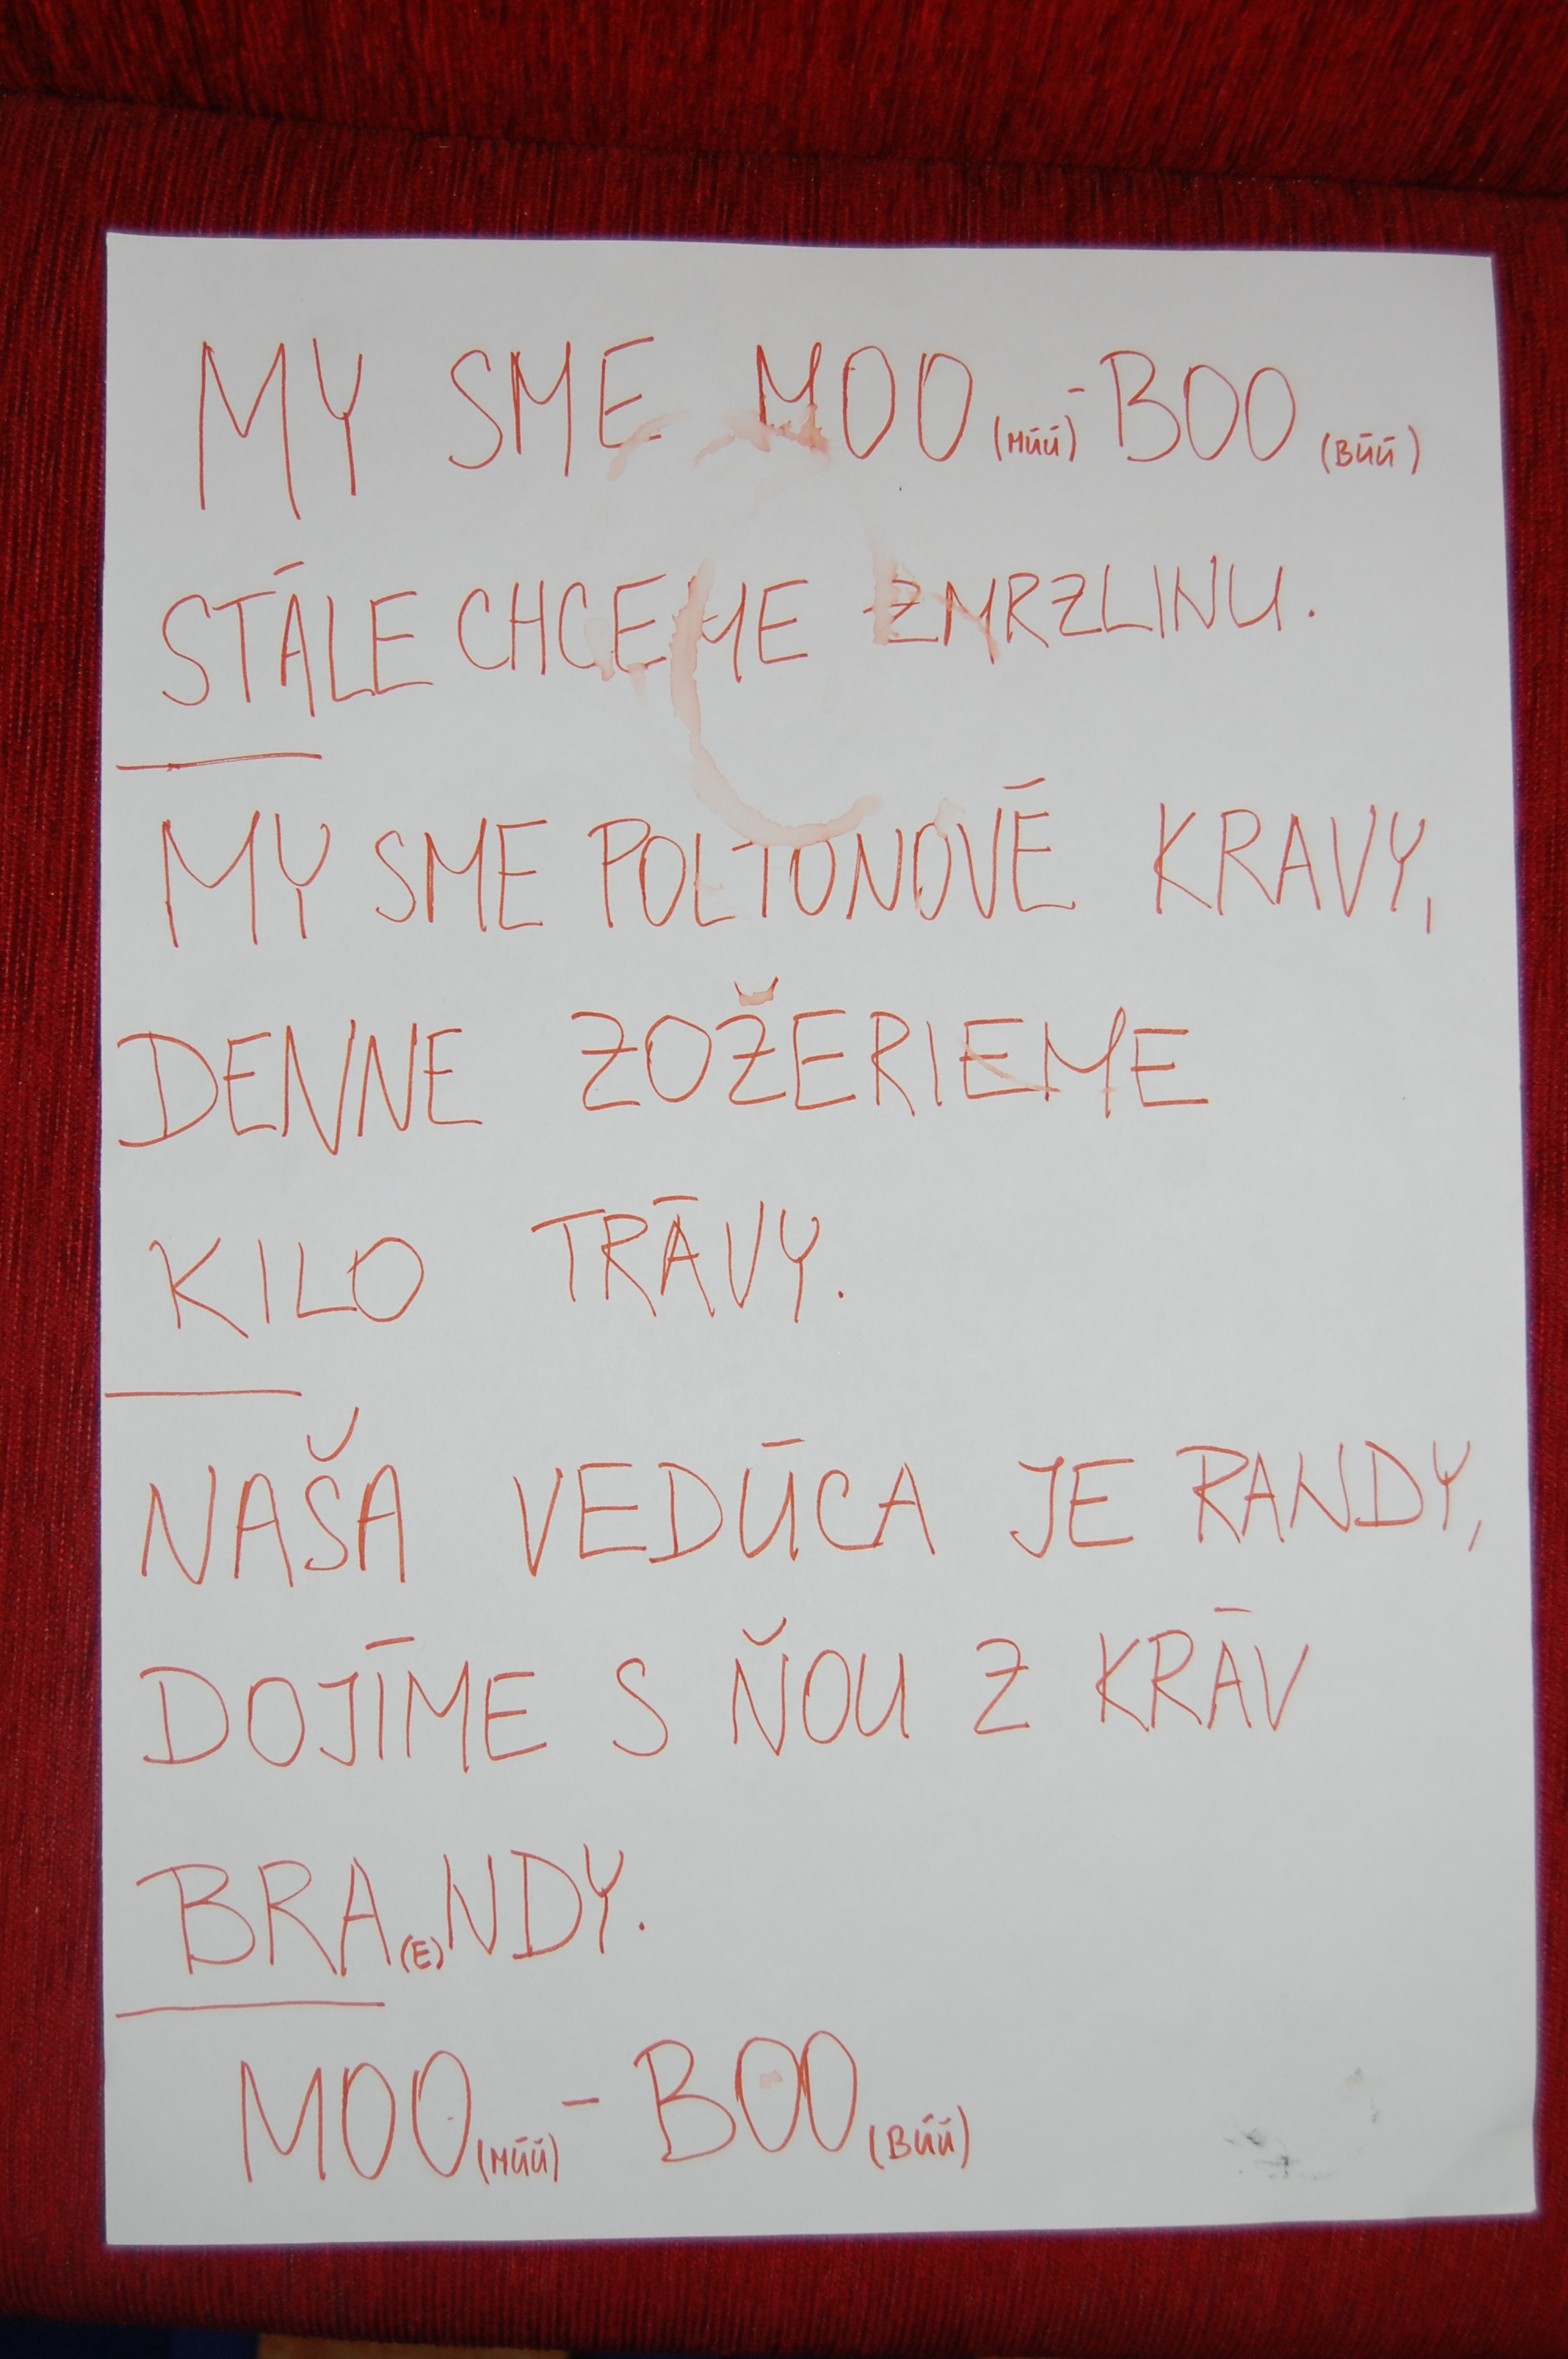 MY SME MOO (MÚÚ) - BOO (BÚÚ)
STÁLE CHCEME ZMRZLINU.
MY SME POLTONOVÉ KRAVY,
DENNE ZOŽERIEME
KILO TRÁVY.
NAŠA VEDÚCA JE RANDY,
DOJÍME S ŇOU Z KRÁV
BRA(E)NDY.
MOO (MÚÚ) - BOO (BÚÚ)